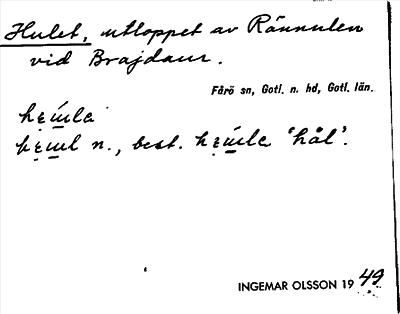 Hulet, utloppet av Rännulen
vid Brajdaur.
Fårö sn, Gotl. n. hd, Gotl. län.
n., best. 'hål'.
INGEMAR OLSSON 19 49